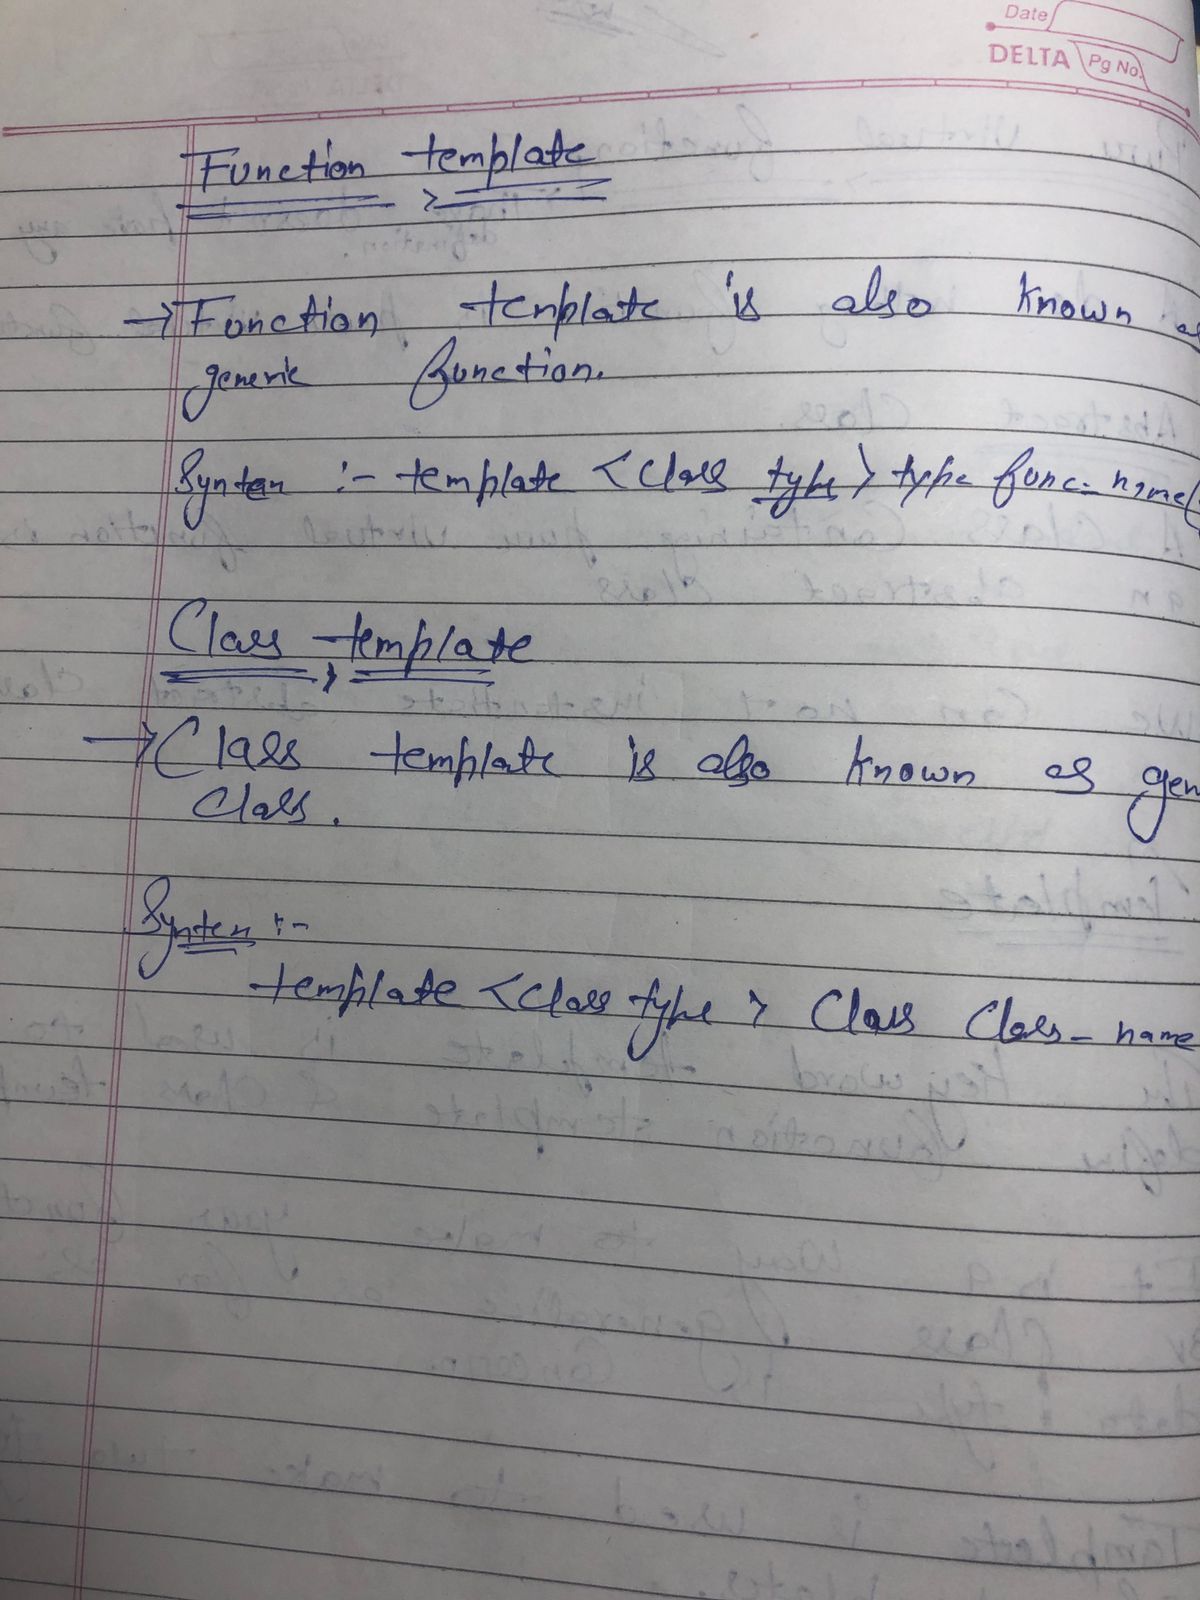 Date
DELTA Pg No.
Function template
→ Function template is also known as
generic function.
Syntax :- template <class type> type func-name(
Class template
→ Class template is also known as gen
class.
Syntax :-
template <class type> class class-name